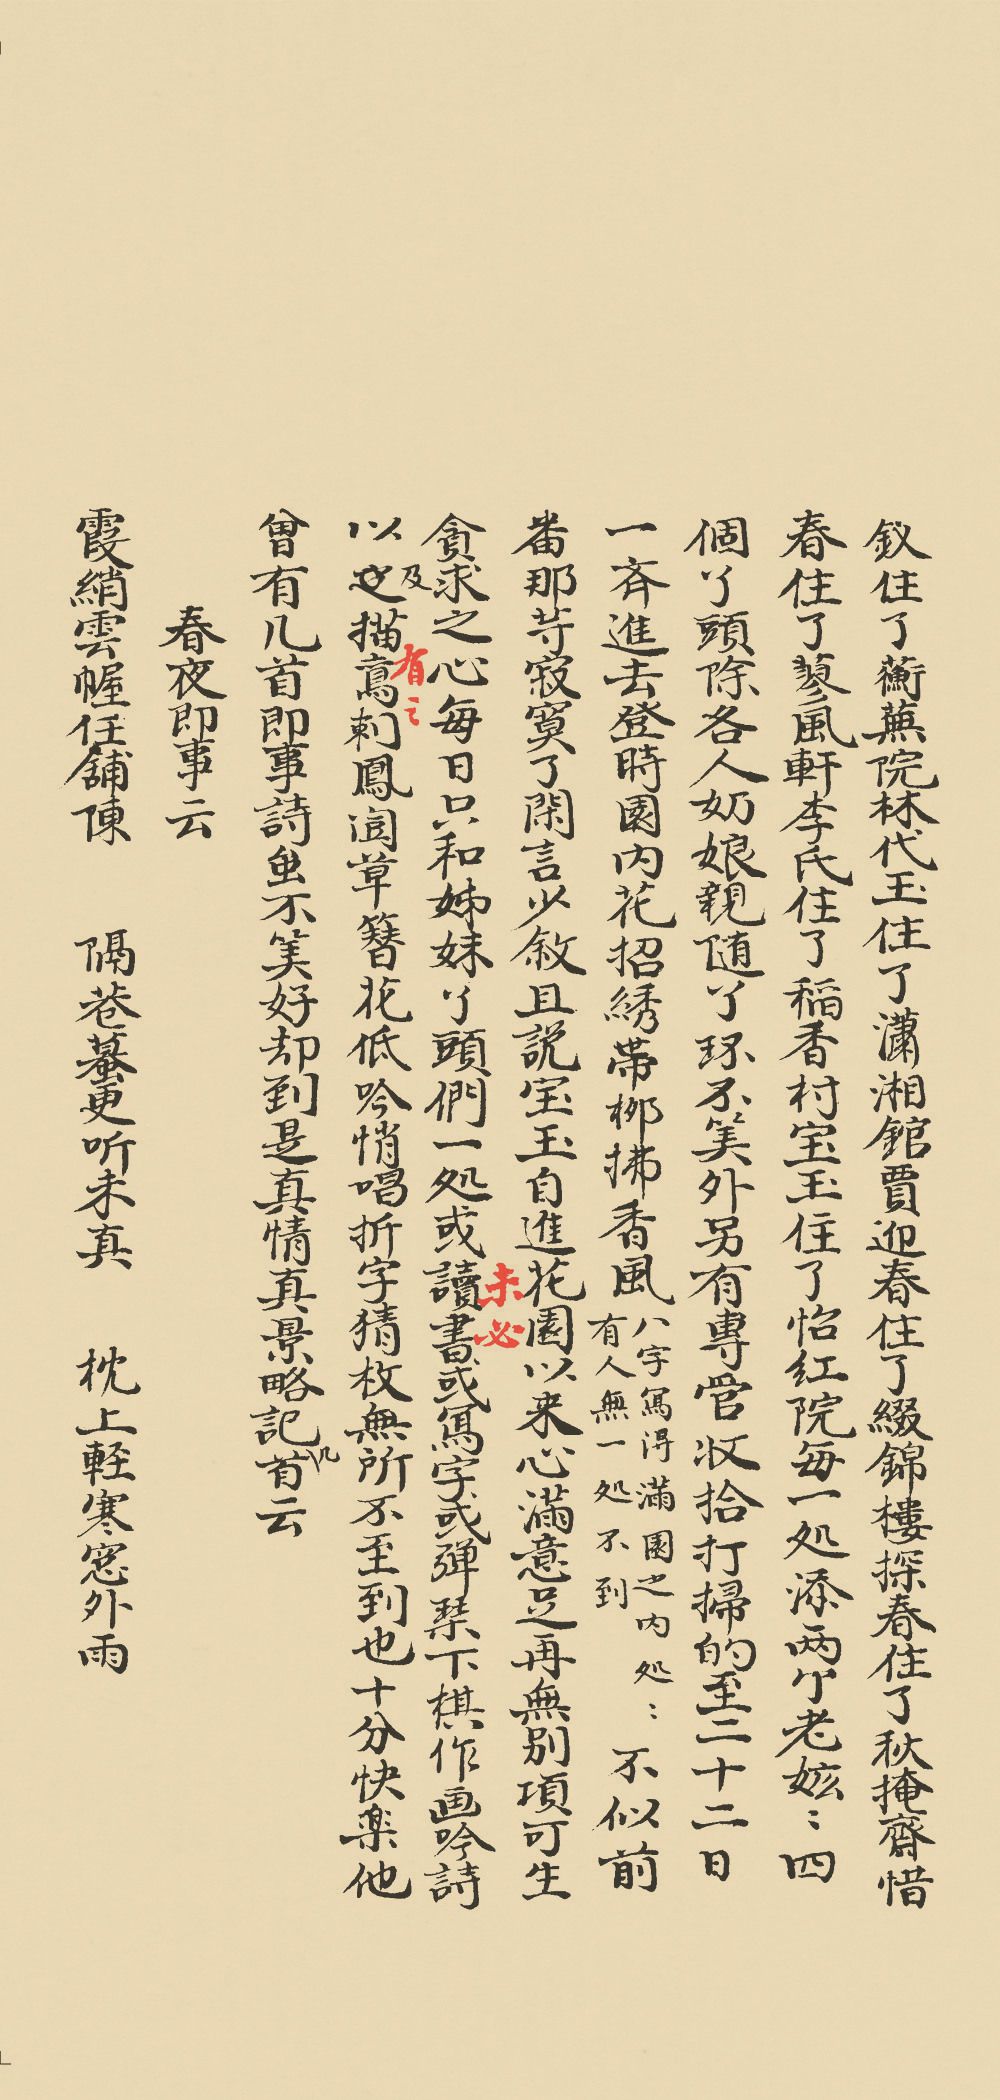 釵住了蘅蕪院林代玉住了瀟湘館賈迎春住了綴錦樓探春住了秋掩齋惜
春住了蓼風軒李氏住了稻香村宝玉住了怡红院每一处添两个老嫉：四
個丫頭除各人奶娘親随丫环不筭外另有專管収拾打掃的至二十二日
一斉進去登時園内花招綉帯柳拂香風
八字寫得滿園之内处：
有人無一处不到
不似前
番那䓁寂寞了閑言少敘且説宝玉自進花園以来心滿意足再無别項可生
未必
貪求之心每日只和姊妹丫頭們一処或讀書或寫字或弹琹下棋作画吟詩
有之
以及描鸞刺鳳鬪草簪花低吟悄唱拆字猜枚無所不至到也十分快楽他
曾有几首即事詩虽不筭好却到是真情真景略記几首云
春夜即事云
霞綃雲幄任舖陳 隔巷蟇更听未真 枕上軽寒窓外雨